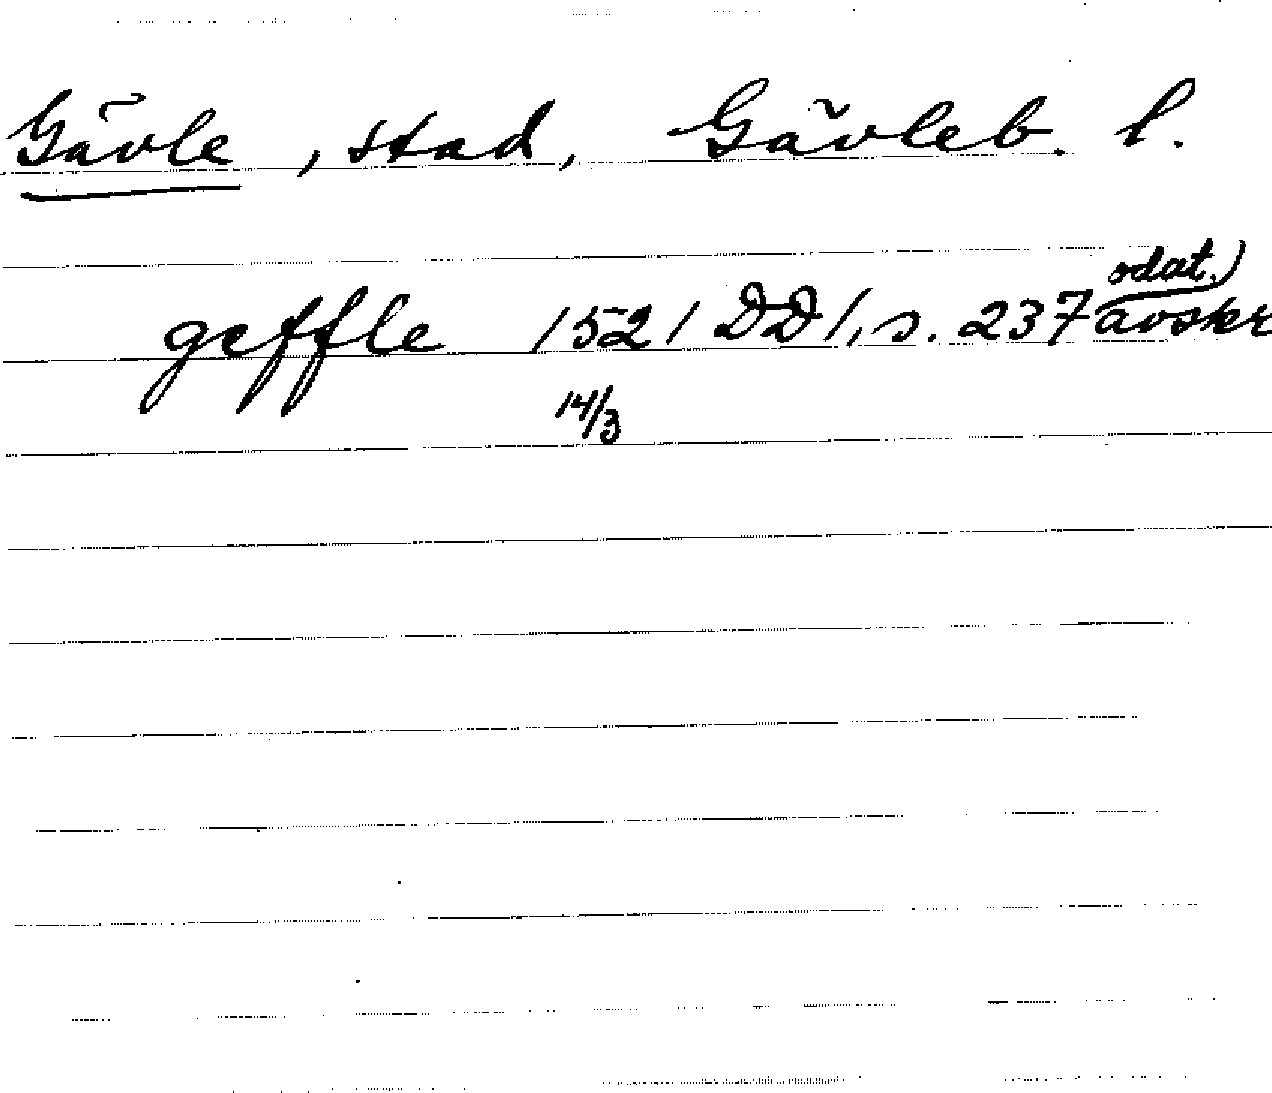 Gävle, stad, Gävleb. l.
odat.)
geffle 1521 DD 1, s. 237 avskr
14/3